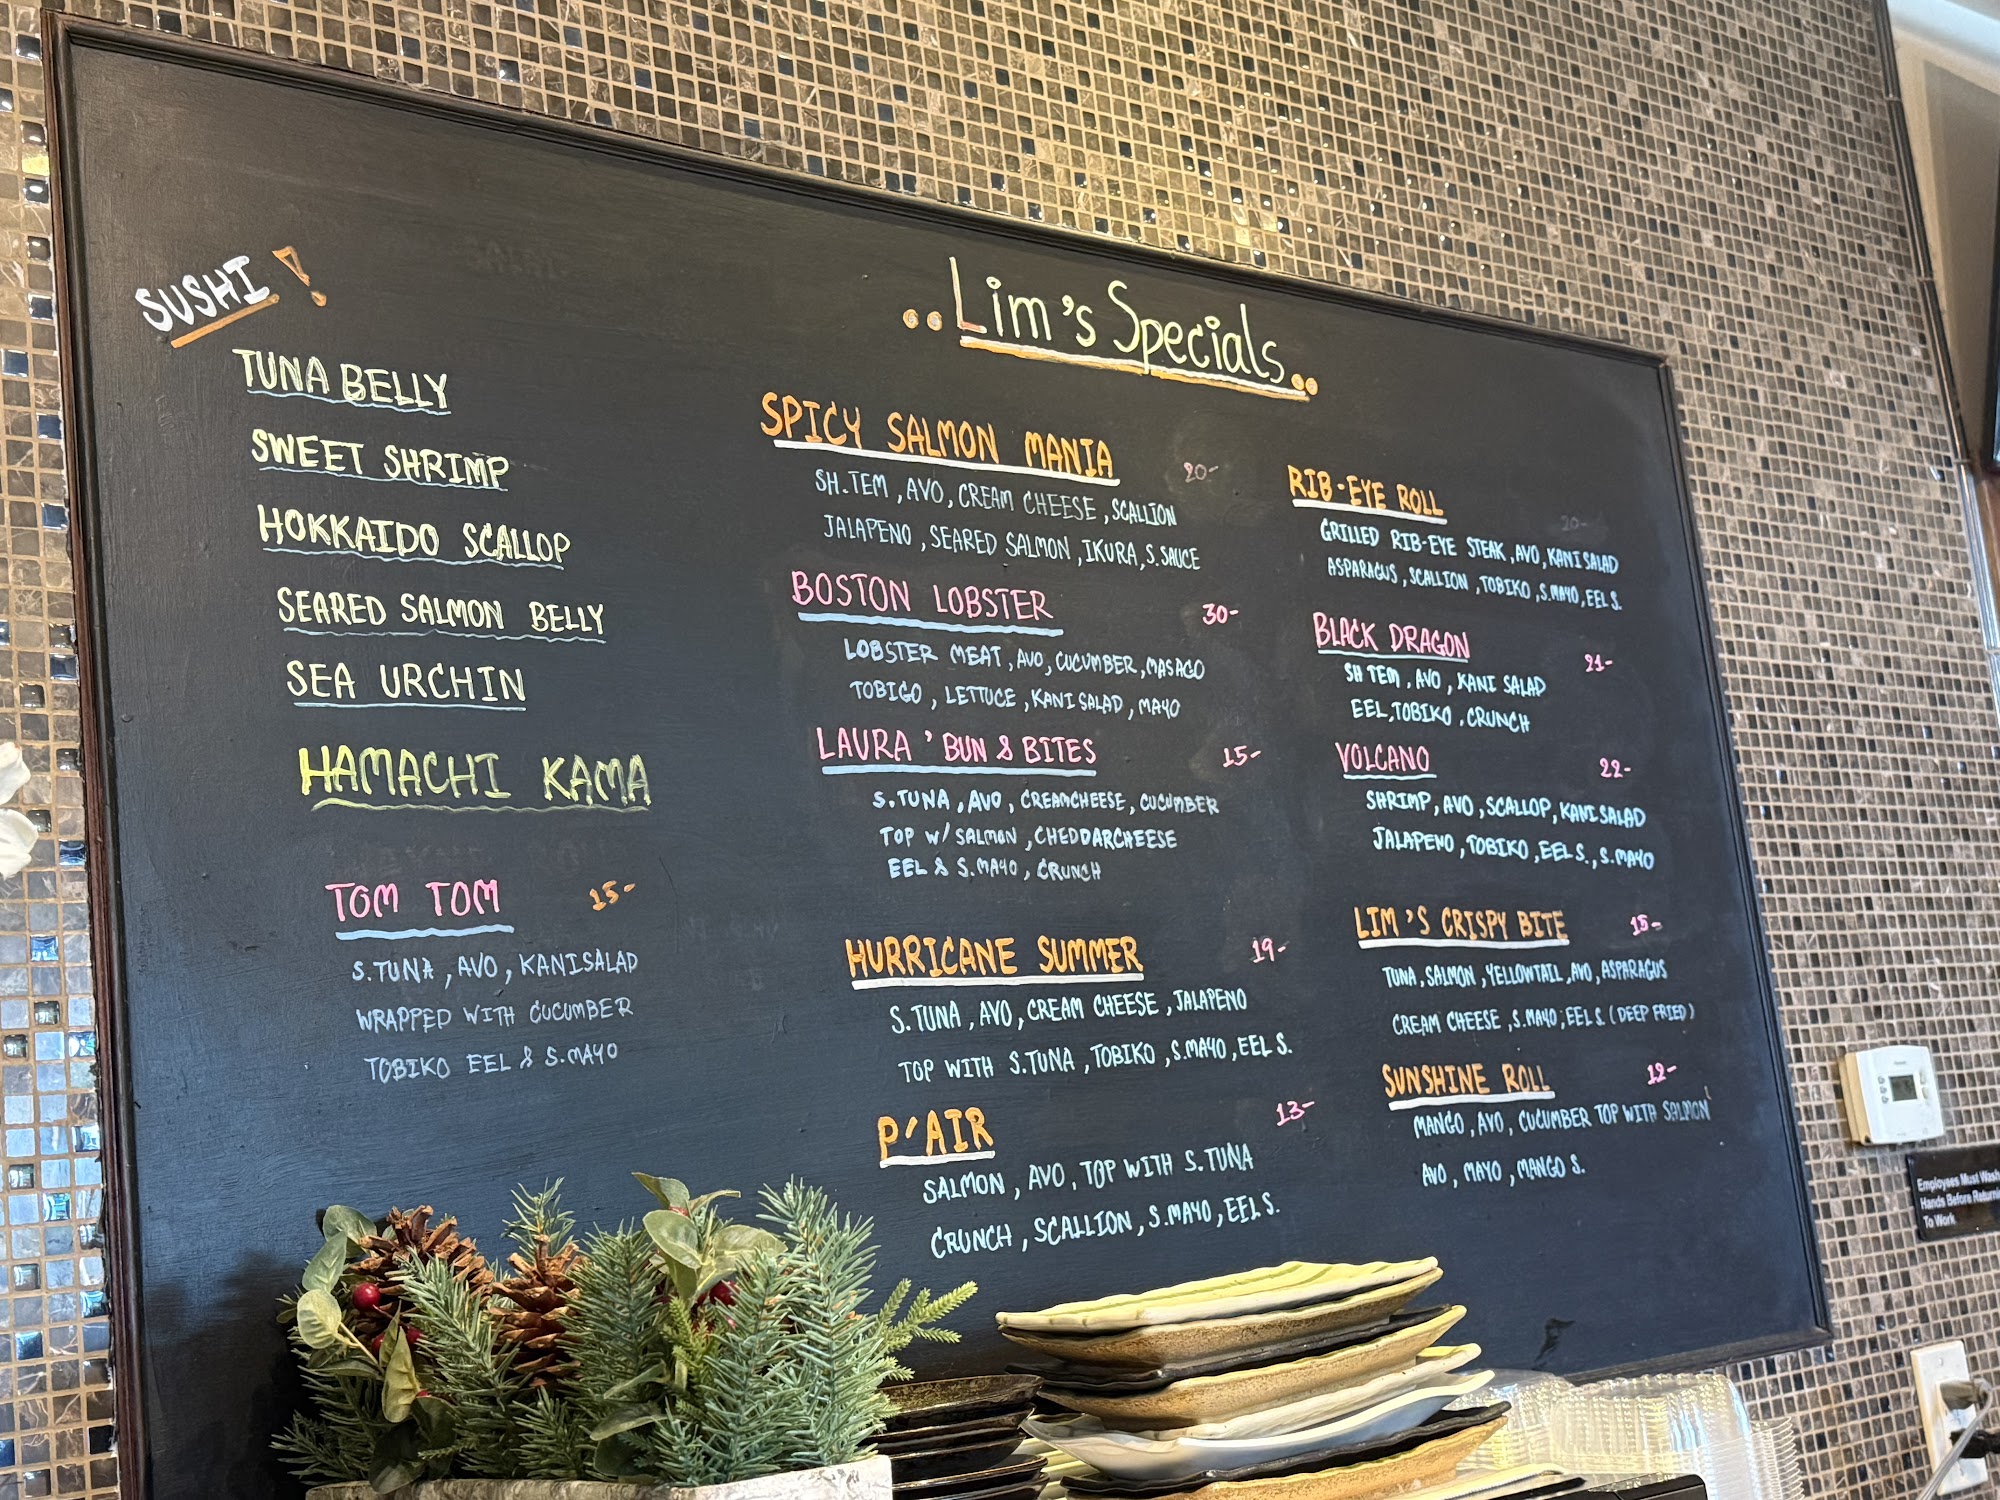 SUSHI!
TUNA BELLY
SWEET SHRIMP
HOKKAIDO SCALLOP
SEARED SALMON BELLY
SEA URCHIN
HAMACHI KAMA
TOM TOM 15-
S.TUNA, AVO, KANISALAD
WRAPPED WITH CUCUMBER
TOBIKO EEL & S.MAYO
..Lim's Specials..
SPICY SALMON MANIA 20-
SH.TEM, AVO, CREAM CHEESE, SCALLION
JALAPENO, SEARED SALMON, IKURA, S.SAUCE
BOSTON LOBSTER 30-
LOBSTER MEAT, AVO, CUCUMBER, MASAGO
TOBIGO, LETTUCE, KANI SALAD, MAYO
LAURA ' BUN & BITES 15-
S.TUNA, AVO, CREAMCHEESE, CUCUMBER
TOP W/ SALMON, CHEDDARCHEESE
EEL & S.MAYO, CRUNCH
HURRICANE SUMMER 19-
S.TUNA, AVO, CREAM CHEESE, JALAPENO
TOP WITH S.TUNA, TOBIKO, S.MAYO, EEL S.
P'AIR 13-
SALMON, AVO, TOP WITH S.TUNA
CRUNCH, SCALLION, S.MAYO, EEL S.
RIB-EYE ROLL 20-
GRILLED RIB-EYE STEAK, AVO, KANI SALAD
ASPARAGUS, SCALLION, TOBIKO, S.MAYO, EEL S.
BLACK DRAGON 21-
SH TEM, AVO, KANI SALAD
EEL, TOBIKO, CRUNCH
VOLCANO 22-
SHRIMP, AVO, SCALLOP, KANI SALAD
JALAPENO, TOBIKO, EEL S., S.MAYO
LIM'S CRISPY BITE 15-
TUNA, SALMON, YELLOWTAIL, AVO, ASPARAGUS
CREAM CHEESE, S.MAYO, EEL S. (DEEP FRIED)
SUNSHINE ROLL 12-
MANGO, AVO, CUCUMBER TOP WITH SALMON
AVO, MAYO, MANGO S.
Employees Must Wash
Hands Before
To Work